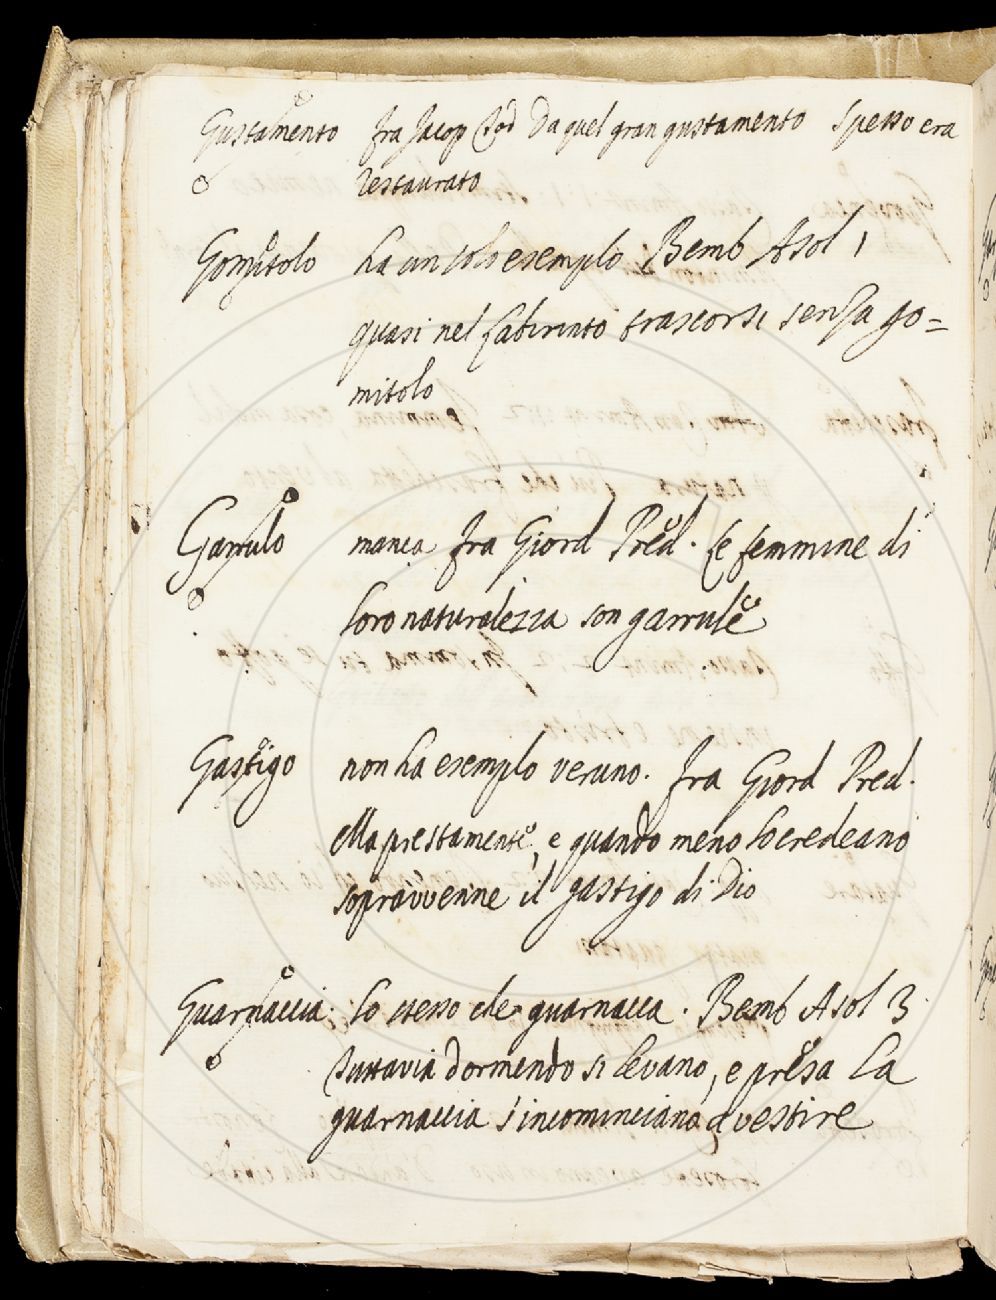 Gustamento fra Jacop Tod Da quel gran gustamento spesso era
restaurato
Gomitolo ha un solo esemplo. Bemb Asol 1
quasi nel labirinto trascorsi senza go=
mitolo
Garrulo manca fra Giord Pred. le femmine di
loro naturalezza son garrule
Gastigo non ha esemplo veruno. fra Giord Pred.
ella prestamente, e quando meno lo credeano
sopravvenne il gastigo di Dio
Guarnaccia. lo stesso che guarnacca. Bemb Asol 3
Tuttavia dormendo si levano, e presa la
guarnaccia s'incominciano a vestire